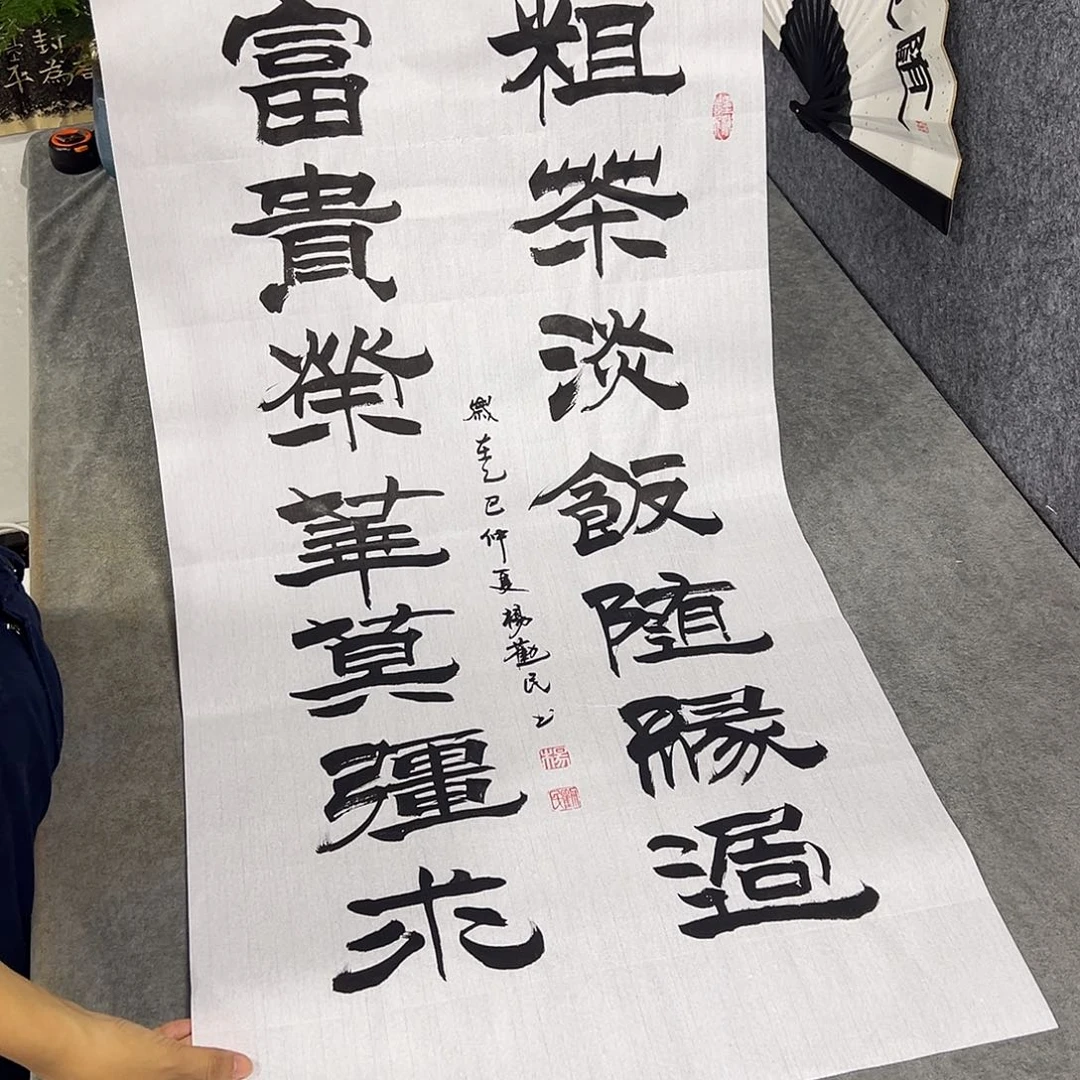 粗茶淡飯随緣過
富貴榮華莫彊求
歲在乙巳仲夏楊勸民书
楊